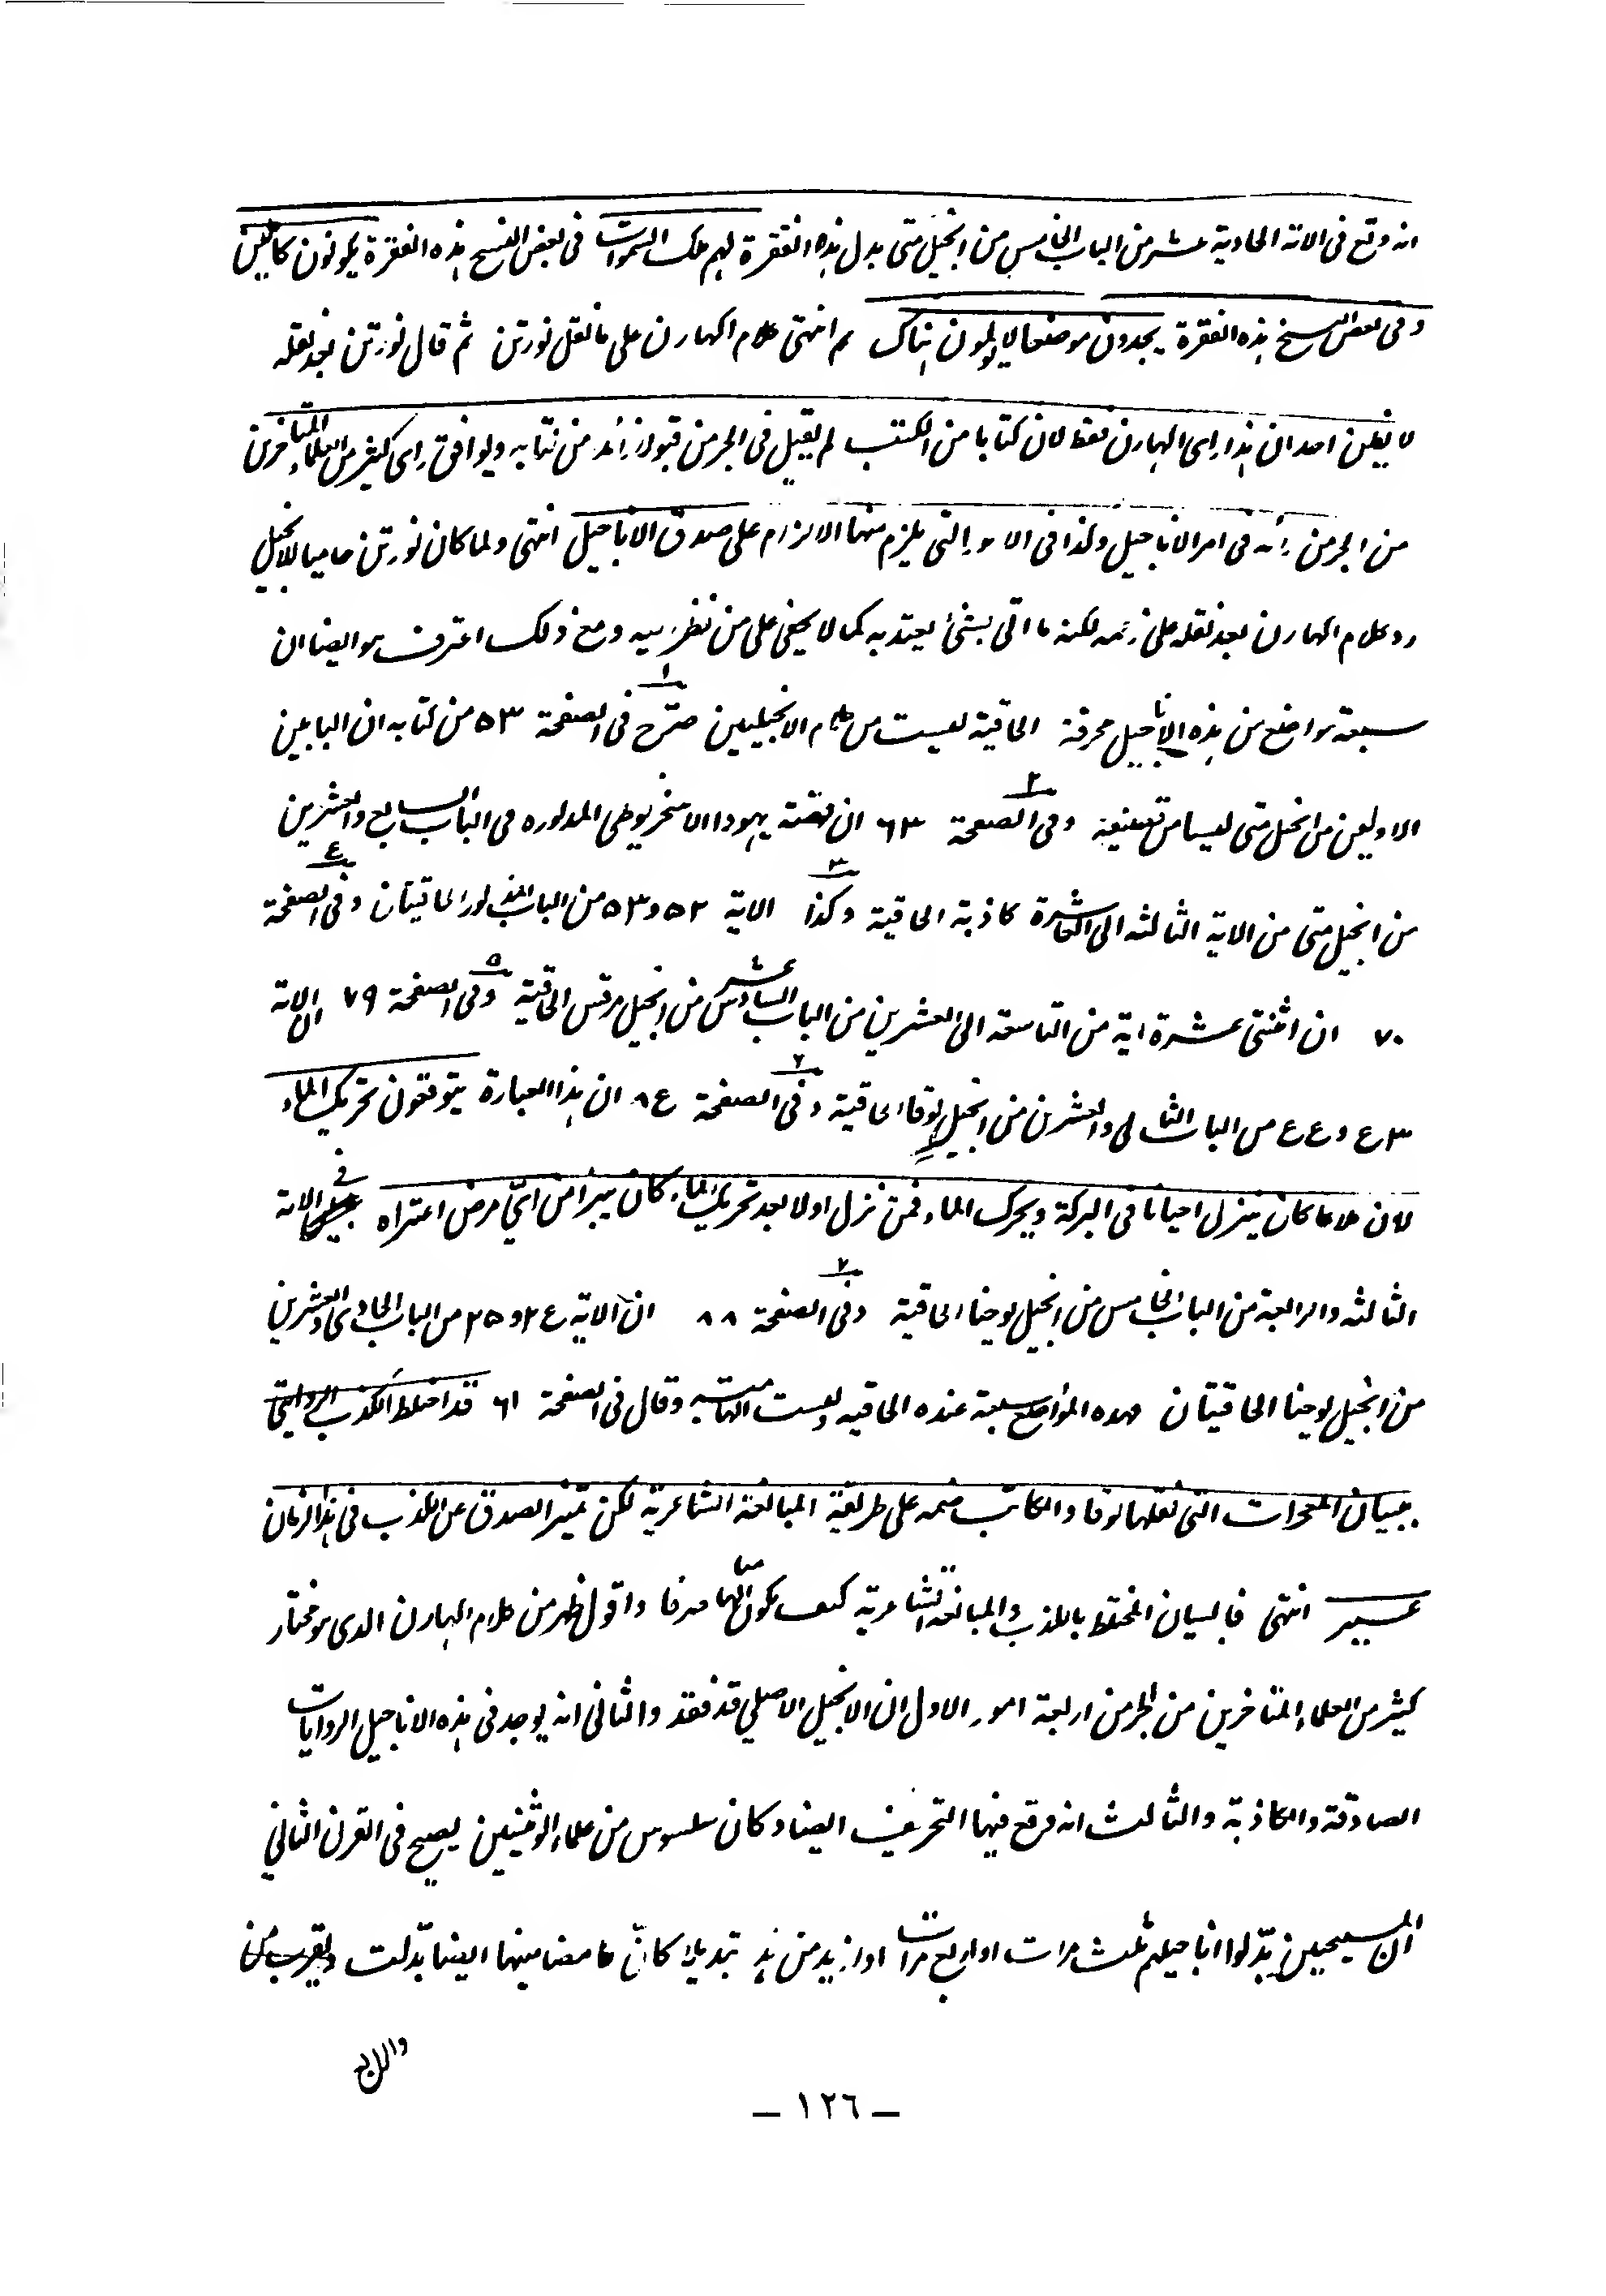 انه وقع فى الاية الحادية عشر من الباب الخامس من انجيل متى بدل هذه الفقرة لهم ملك السموات فى بعض النسخ هذه الفقرة يكونون كاملين
وفى بعض النسخ هذه الفقرة يجدون موضعا لا يولمون هناك ثم انتهى كلام اكهارن على ما نقل نورتن ثم قال نورتن بعد نقله
لا يظن احد ان هذا راى اكهارن فقط لان كتابا من الكتب لم يقبل فى الجرمن قبولا زائد من كتابه ويوافق راى كثير من العلماء المتأخرين
من الجرمن رأيه فى امر الاناجيل وكذا فى الامور التى يلزم منها الالزام على صدق الاناجيل انتهى ولما كان نورتن حاميا للانجيل
رد كلام اكهارن بعد نقله على زعمه لكنه ما اتى بشئ يعتد به كما لا يخفى على من نظر اليه ومع ذلك اعترف هو ايضا ان
سبعة مواضع من هذه الاناجيل محرفة الحاقية ليست من كلام الانجيليين ١ صرّح فى الصفحة ٥٣ من كتابه ان البابين
الاولين من انجيل متى ليسا من تصنيفه ٢ وفى الصفحة ٦٣ ان قصة يهودا الاسخريوطى المذكوره فى الباب السابع والعشرين
من انجيل متى من الاية الثالثه الى العاشرة كاذبة الحاقية ٣ وكذا الاية ٥٢ و ٥٣ من الباب المذكور الحاقيتان ٤ وفى الصفحة
٧٠ ان اثنتى عشرة اية من التاسعة الى العشرين من الباب السادس عشر من انجيل مرقس الحاقية ٥ وفى الصفحة ٧٩ ان الاية
٤٣ و ٤٤ من الباب الثانى والعشرين من انجيل لوقا الحاقية ٦ وفى الصفحة ٨٤ ان هذا العبارة يتوقعون تحريك الماء
لان ملاكا كان ينزل احيانا فى البركة ويحرك الماء فمن نزل اولا بعد تحريك الماء كان يبرأ من اىّ مرض اعتراه فى الاية
الثالثه والرابعة من الباب الخامس من انجيل يوحنا الحاقية ٧ وفى الصفحة ٨٨ ان الاية ٢٤ و ٢٥ من الباب الحادى والعشرين
من انجيل يوحنا الحاقيتان فهذه المواضع سبعة عنده الحاقيه وليست الهاميه وقال فى الصفحة ٦١ قد اختلط الكذب الروايتى
ببيان المعجزات التى نقلها لوقا والكاتب ضمه على طريقة المبالغة الشاعرية لكن تميز الصدق عن الكذب فى هذا الزمان
عسير انتهى فالبيان المختلط بالكذب والمبالغة الشاعرية كيف يكون الهاميا صرفا واقول ظهر من كلام اكهارن الذى هو مختار
كثير من العلماء المتأخرين من الجرمن اربعة امور الاول ان الانجيل الاصلى قد فقد والثانى انه يوجد فى هذه الاناجيل الروايات
الصادقة والكاذبة والثالث انه وقع فيها التحريف ايضا وكان سلسوس من علماء الوثنيين يصيح فى القرن الثانى
ان المسيحيين بدّلوا اناجيلهم ثلث مرات او اربع مرات او ازيد من هذه تبديلا كانّ مضامينها ايضا بدّلت
والرابع
— ١٢٦ —